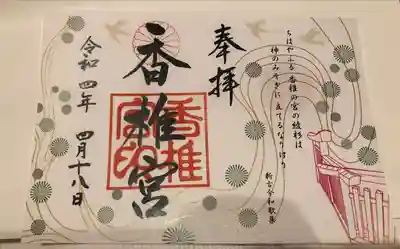 奉拝
ちはやふる 香椎の宮の綾杉は
神のみそぎに たてるなりけり
新古今和歌集
香椎宮
香椎
宮印
令和四年 四月十八日